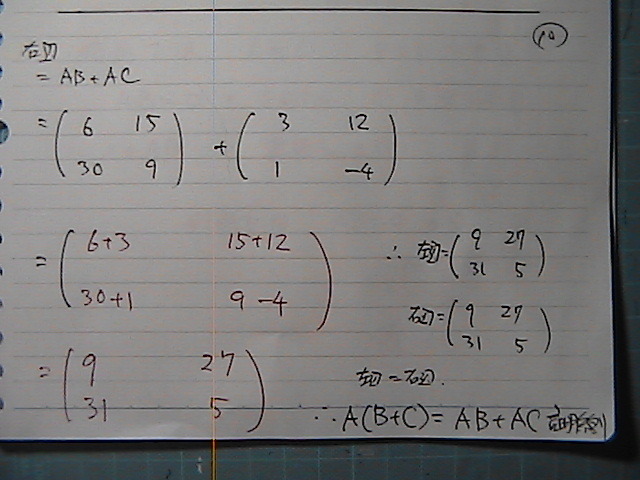 ⑩
右辺
= AB + AC
= ( 6 15 ) + ( 3 12 )
( 30 9 ) ( 1 -4 )
= ( 6+3 15+12 )
( 30+1 9-4 )
= ( 9 27 )
( 31 5 )
∴ 左辺 = ( 9 27 )
( 31 5 )
右辺 = ( 9 27 )
( 31 5 )
左辺 = 右辺.
∴ A(B+C) = AB + AC